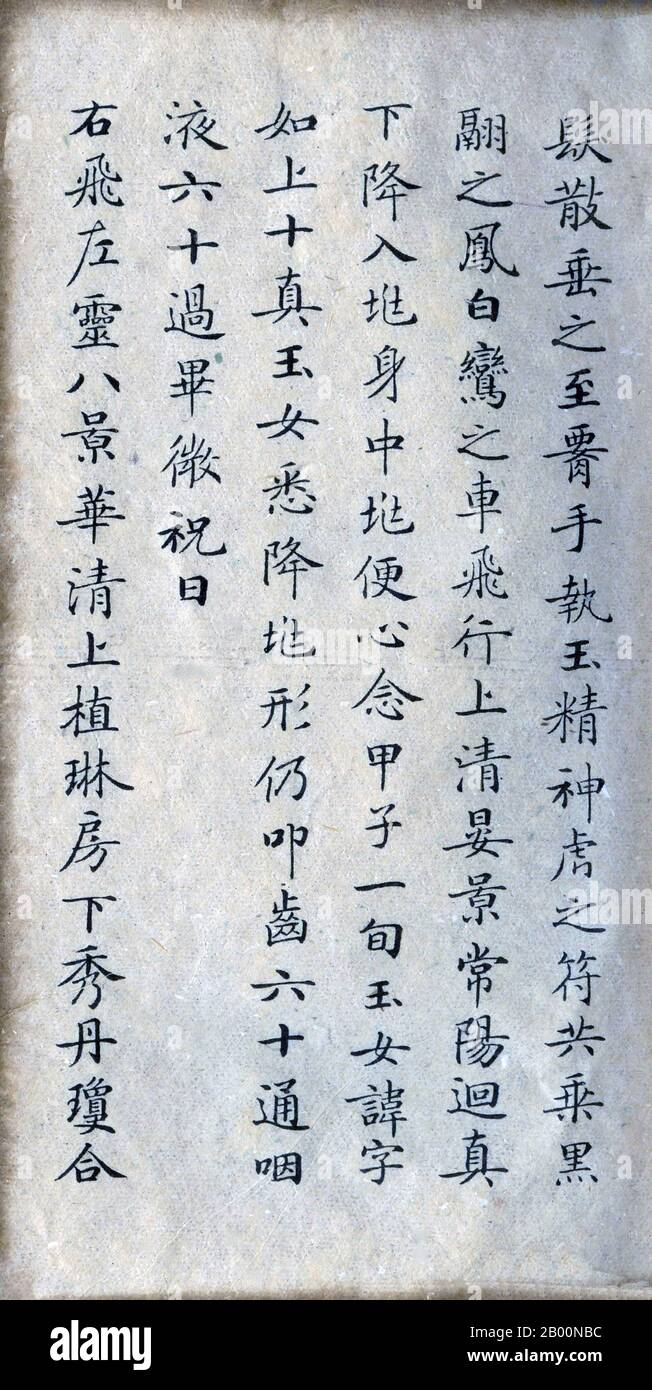 髮散垂之至䏚手執玉精神虎之符共乗黒
翮之鳳白鸞之車飛行上清晏景常陽迴真
下降入𡉟身中𡉟便心念甲子一旬玉女諱字
如上十真玉女悉降𡉟形仍叩齒六十通咽
液六十過畢微祝曰
右飛左靈八景華清上植琳房下秀丹瓊合
alamy
Image ID: 2B00NBC
www.alamy.com